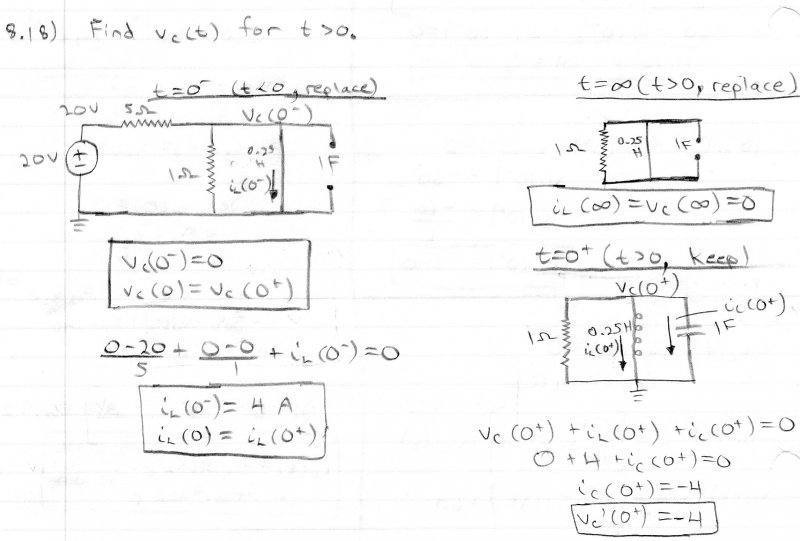 8.18) Find vc(t) for t>0.
t=0⁻ (t<0, replace)
20V 5Ω vc(0⁻)
20V
1Ω
0.25
H
iL(0⁻)
1F
vc(0⁻)=0
vc(0)=vc(0⁺)
0-20/5 + 0-0/1 + iL(0⁻)=0
iL(0⁻)= 4 A
iL(0)= iL(0⁺)
t=∞ (t>0, replace)
1Ω
0.25
H
1F
iL(∞)=vc(∞)=0
t=0⁺ (t>0, keep)
vc(0⁺)
1Ω
0.25H
iL(0⁺)
ic(0⁺)
1F
vc(0⁺) +iL(0⁺) +ic(0⁺)=0
0 +4 +ic(0⁺)=0
ic(0⁺)=-4
vc'(0⁺)=-4